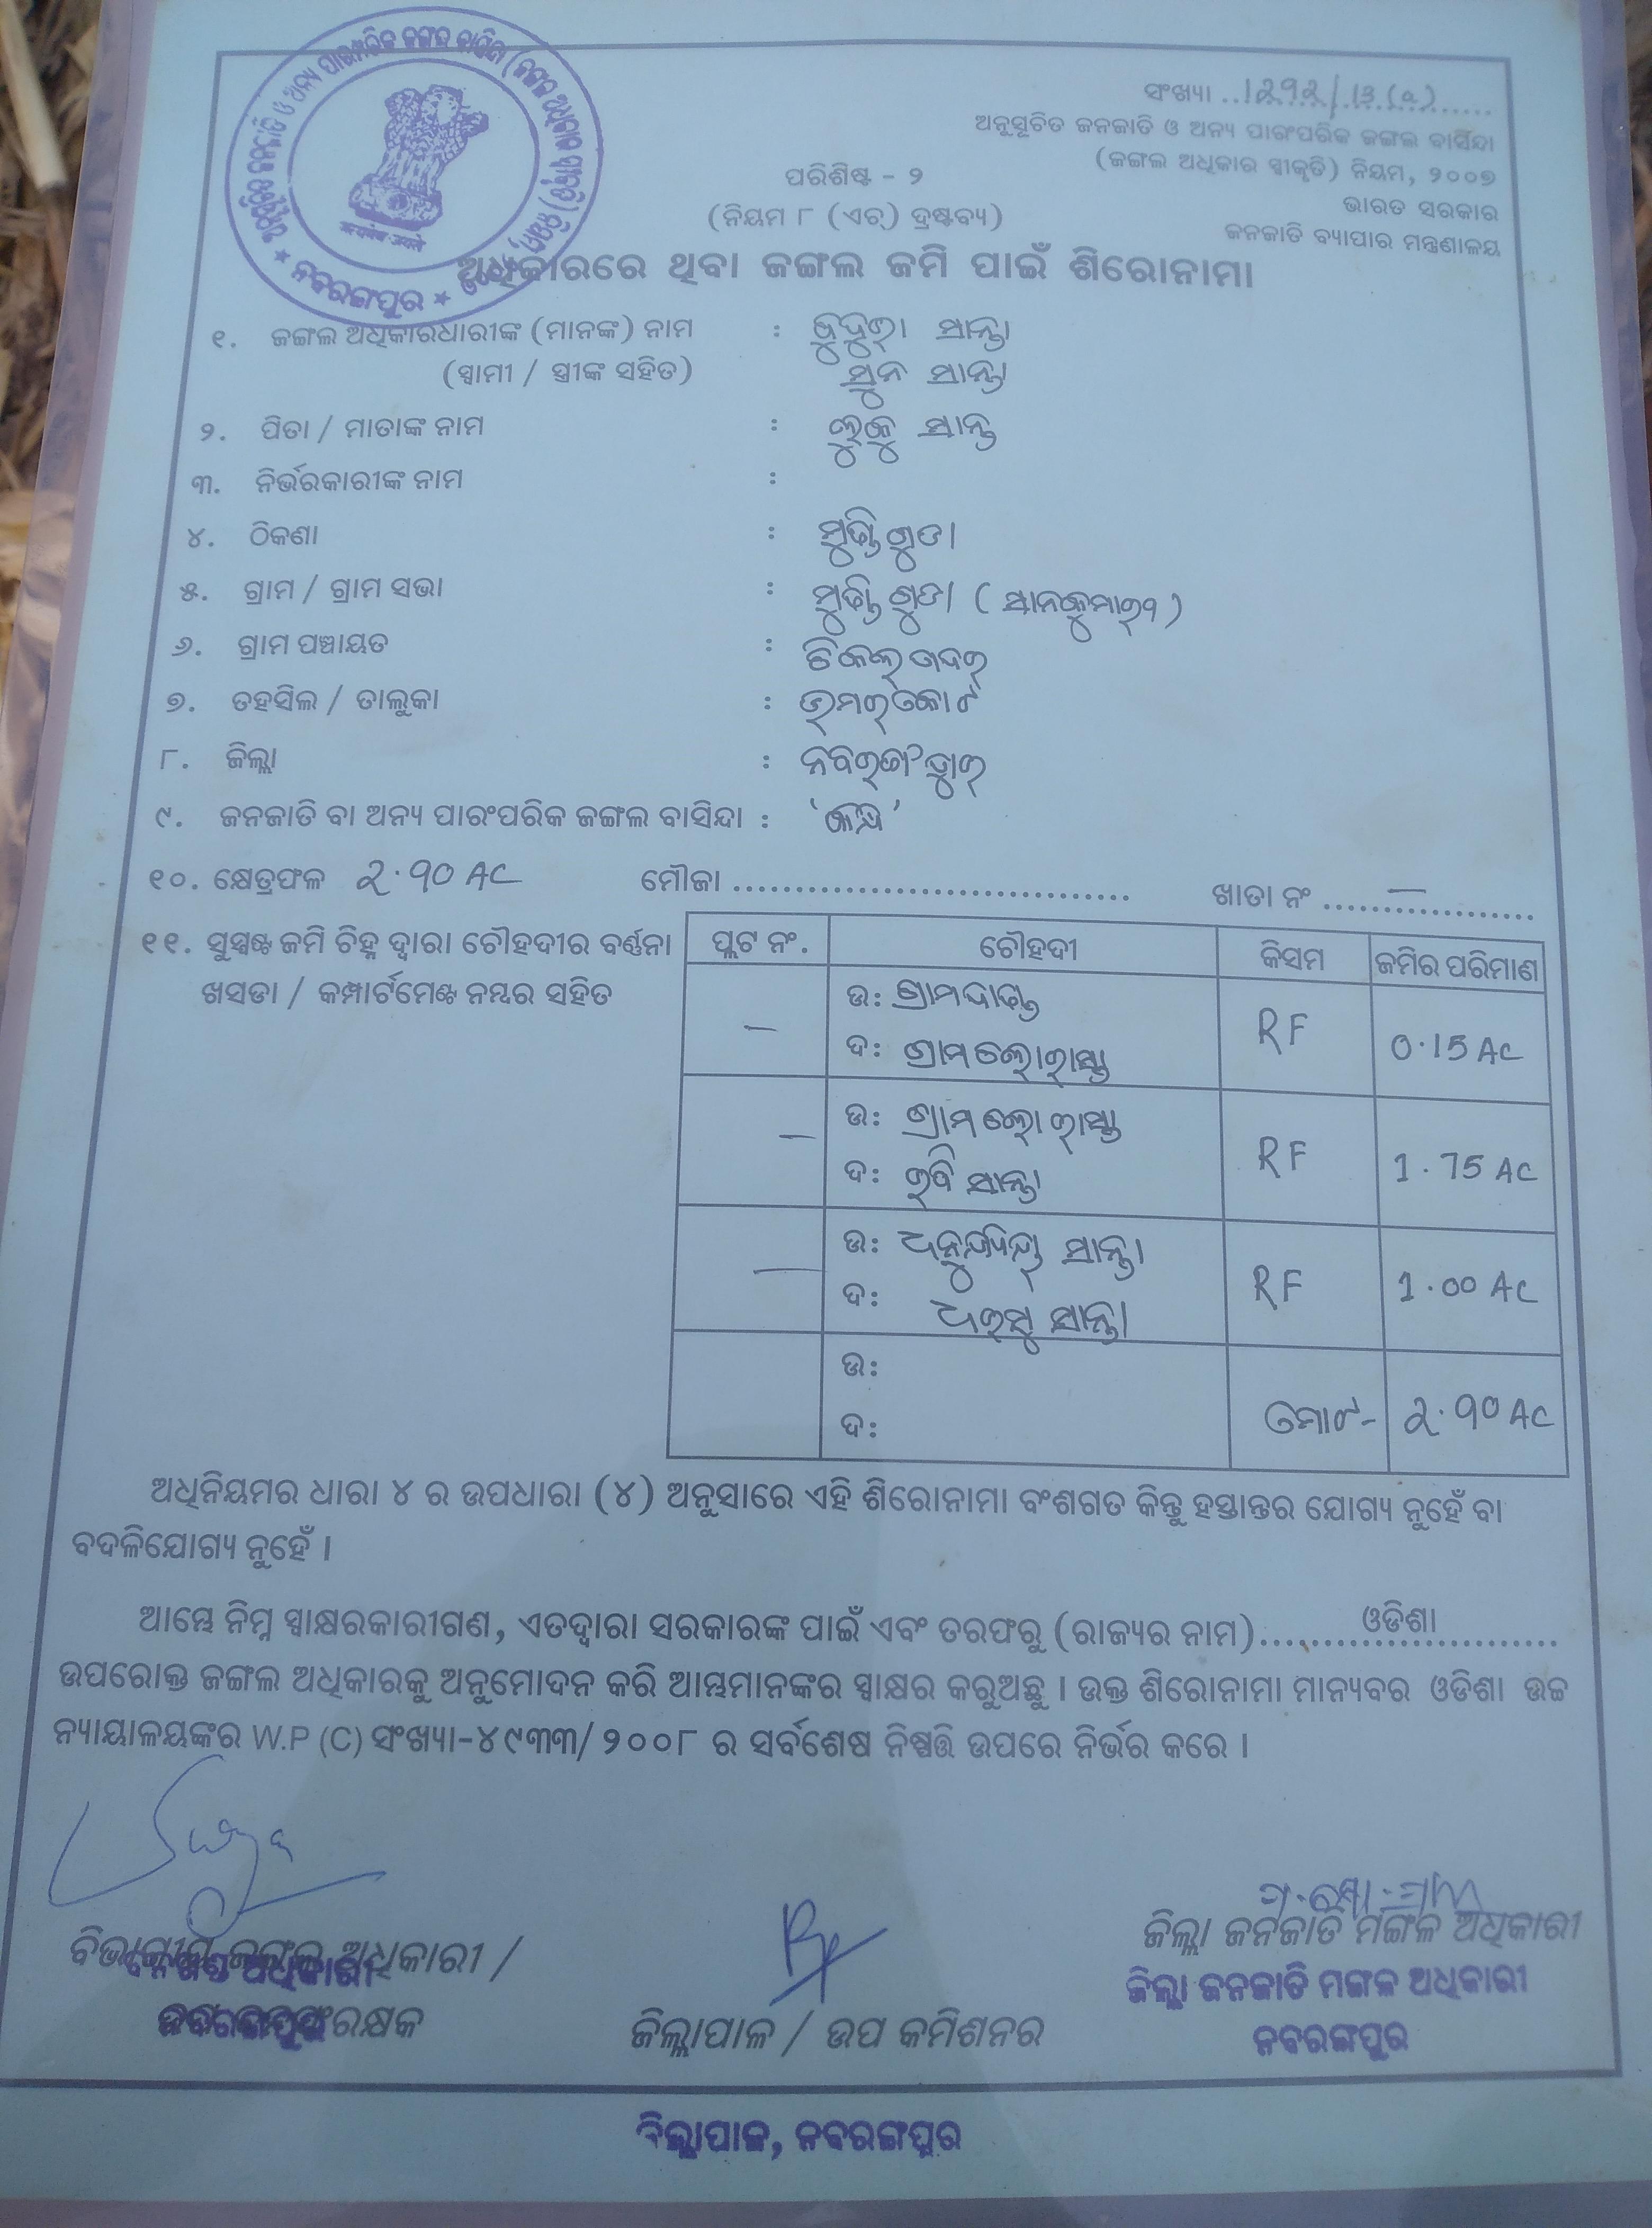 ସଂଖ୍ୟା ..୧୨୨୨/୧୬(୧)......
ଅନୁସୂଚିତ ଜନଜାତି ଓ ଅନ୍ୟ ପାରଂପରିକ ଜଙ୍ଗଲ ବାସିନ୍ଦା
(ଜଙ୍ଗଲ ଅଧିକାର ସ୍ୱୀକୃତି) ନିୟମ, ୨୦୦୭
ଭାରତ ସରକାର
ଜନଜାତି ବ୍ୟାପାର ମନ୍ତ୍ରଣାଳୟ
ପରିଶିଷ୍ଟ - ୨
(ନିୟମ ୮ (ଏଚ୍) ଦ୍ରଷ୍ଟବ୍ୟ)
ଅଧିକାରରେ ଥିବା ଜଙ୍ଗଲ ଜମି ପାଇଁ ଶିରୋନାମା
ନବରଙ୍ଗପୁର
୧. ଜଙ୍ଗଲ ଅଧିକାରଧାରୀଙ୍କ (ମାନଙ୍କ) ନାମ : ସାନ୍ତା
(ସ୍ୱାମୀ / ସ୍ତ୍ରୀଙ୍କ ସହିତ) ସୁନ ସାନ୍ତା
୨. ପିତା / ମାତାଙ୍କ ନାମ : ସାନ୍ତ
୩. ନିର୍ଭରକାରୀଙ୍କ ନାମ :
୪. ଠିକଣା : ମୁଣ୍ଡିଗୁଡା
୫. ଗ୍ରାମ / ଗ୍ରାମ ସଭା : ମୁଣ୍ଡିଗୁଡା
୬. ଗ୍ରାମ ପଞ୍ଚାୟତ :
୭. ତହସିଲ / ତାଲୁକା : ଉମରକୋଟ
୮. ଜିଲ୍ଲା : ନବରଙ୍ଗପୁର
୯. ଜନଜାତି ବା ଅନ୍ୟ ପାରଂପରିକ ଜଙ୍ଗଲ ବାସିନ୍ଦା : 'କନ୍ଧ'
୧୦. କ୍ଷେତ୍ରଫଳ 2.90 AC ମୌଜା .............................. ଖାତା ନଂ ....—....
୧୧. ସୁସ୍ପଷ୍ଟ ଜମି ଚିହ୍ନ ଦ୍ୱାରା ଚୌହଦୀର ବର୍ଣ୍ଣନା
ଖସଡା / କମ୍ପାର୍ଟମେଣ୍ଟ ନମ୍ବର ସହିତ
ପ୍ଲଟ ନଂ. ଚୌହଦୀ କିସମ ଜମିର ପରିମାଣ
— ଉ: RF 0.15 AC
ଦ: ଗ୍ରାମ ରାସ୍ତା
— ଉ: ଗ୍ରାମ ରାସ୍ତା RF 1.75 AC
ଦ: ରବି ସାନ୍ତା
— ଉ: ସାନ୍ତା RF 1.00 AC
ଦ: ସାନ୍ତା
ଉ: ମୋଟ- 2.90 AC
ଦ:
ଅଧିନିୟମର ଧାରା ୪ ର ଉପଧାରା (୪) ଅନୁସାରେ ଏହି ଶିରୋନାମା ବଂଶଗତ କିନ୍ତୁ ହସ୍ତାନ୍ତର ଯୋଗ୍ୟ ନୁହେଁ ବା
ବଦଳିଯୋଗ୍ୟ ନୁହେଁ ।
ଆମ୍ଭେ ନିମ୍ନ ସ୍ୱାକ୍ଷରକାରୀଗଣ, ଏତଦ୍ୱାରା ସରକାରଙ୍କ ପାଇଁ ଏବଂ ତରଫରୁ (ରାଜ୍ୟର ନାମ)........ଓଡିଶା........
ଉପରୋକ୍ତ ଜଙ୍ଗଲ ଅଧିକାରକୁ ଅନୁମୋଦନ କରି ଆମ୍ଭମାନଙ୍କର ସ୍ୱାକ୍ଷର କରୁଅଛୁ । ଉକ୍ତ ଶିରୋନାମା ମାନ୍ୟବର ଓଡିଶା ଉଚ୍ଚ
ନ୍ୟାୟାଳୟଙ୍କର W.P (C) ସଂଖ୍ୟା-୪୯୩୩/୨୦୦୮ ର ସର୍ବଶେଷ ନିଷ୍ପତ୍ତି ଉପରେ ନିର୍ଭର କରେ ।
ବିଭାଗୀୟ ଜଙ୍ଗଲ ଅଧିକାରୀ /
ବନଖଣ୍ଡ ଅଧିକାରୀ
ନବରଙ୍ଗପୁର
ଜିଲ୍ଲାପାଳ / ଉପ କମିଶନର
ଜିଲ୍ଲା ଜନଜାତି ମଙ୍ଗଳ ଅଧିକାରୀ
ଜିଲ୍ଲା ଜନଜାତି ମଙ୍ଗଳ ଅଧିକାରୀ
ନବରଙ୍ଗପୁର
ଜିଲ୍ଲାପାଳ, ନବରଙ୍ଗପୁର